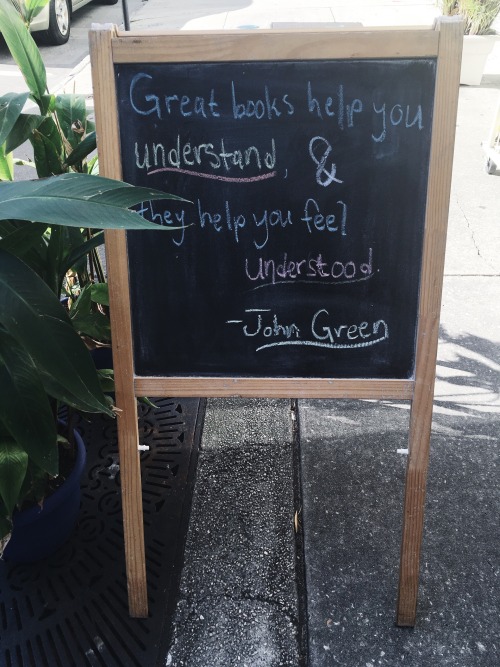 Great books help you
understand, &
they help you feel
understood.
- John Green